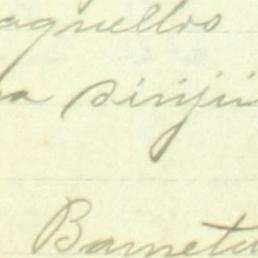 aquellos
a dirijir
Barnetu